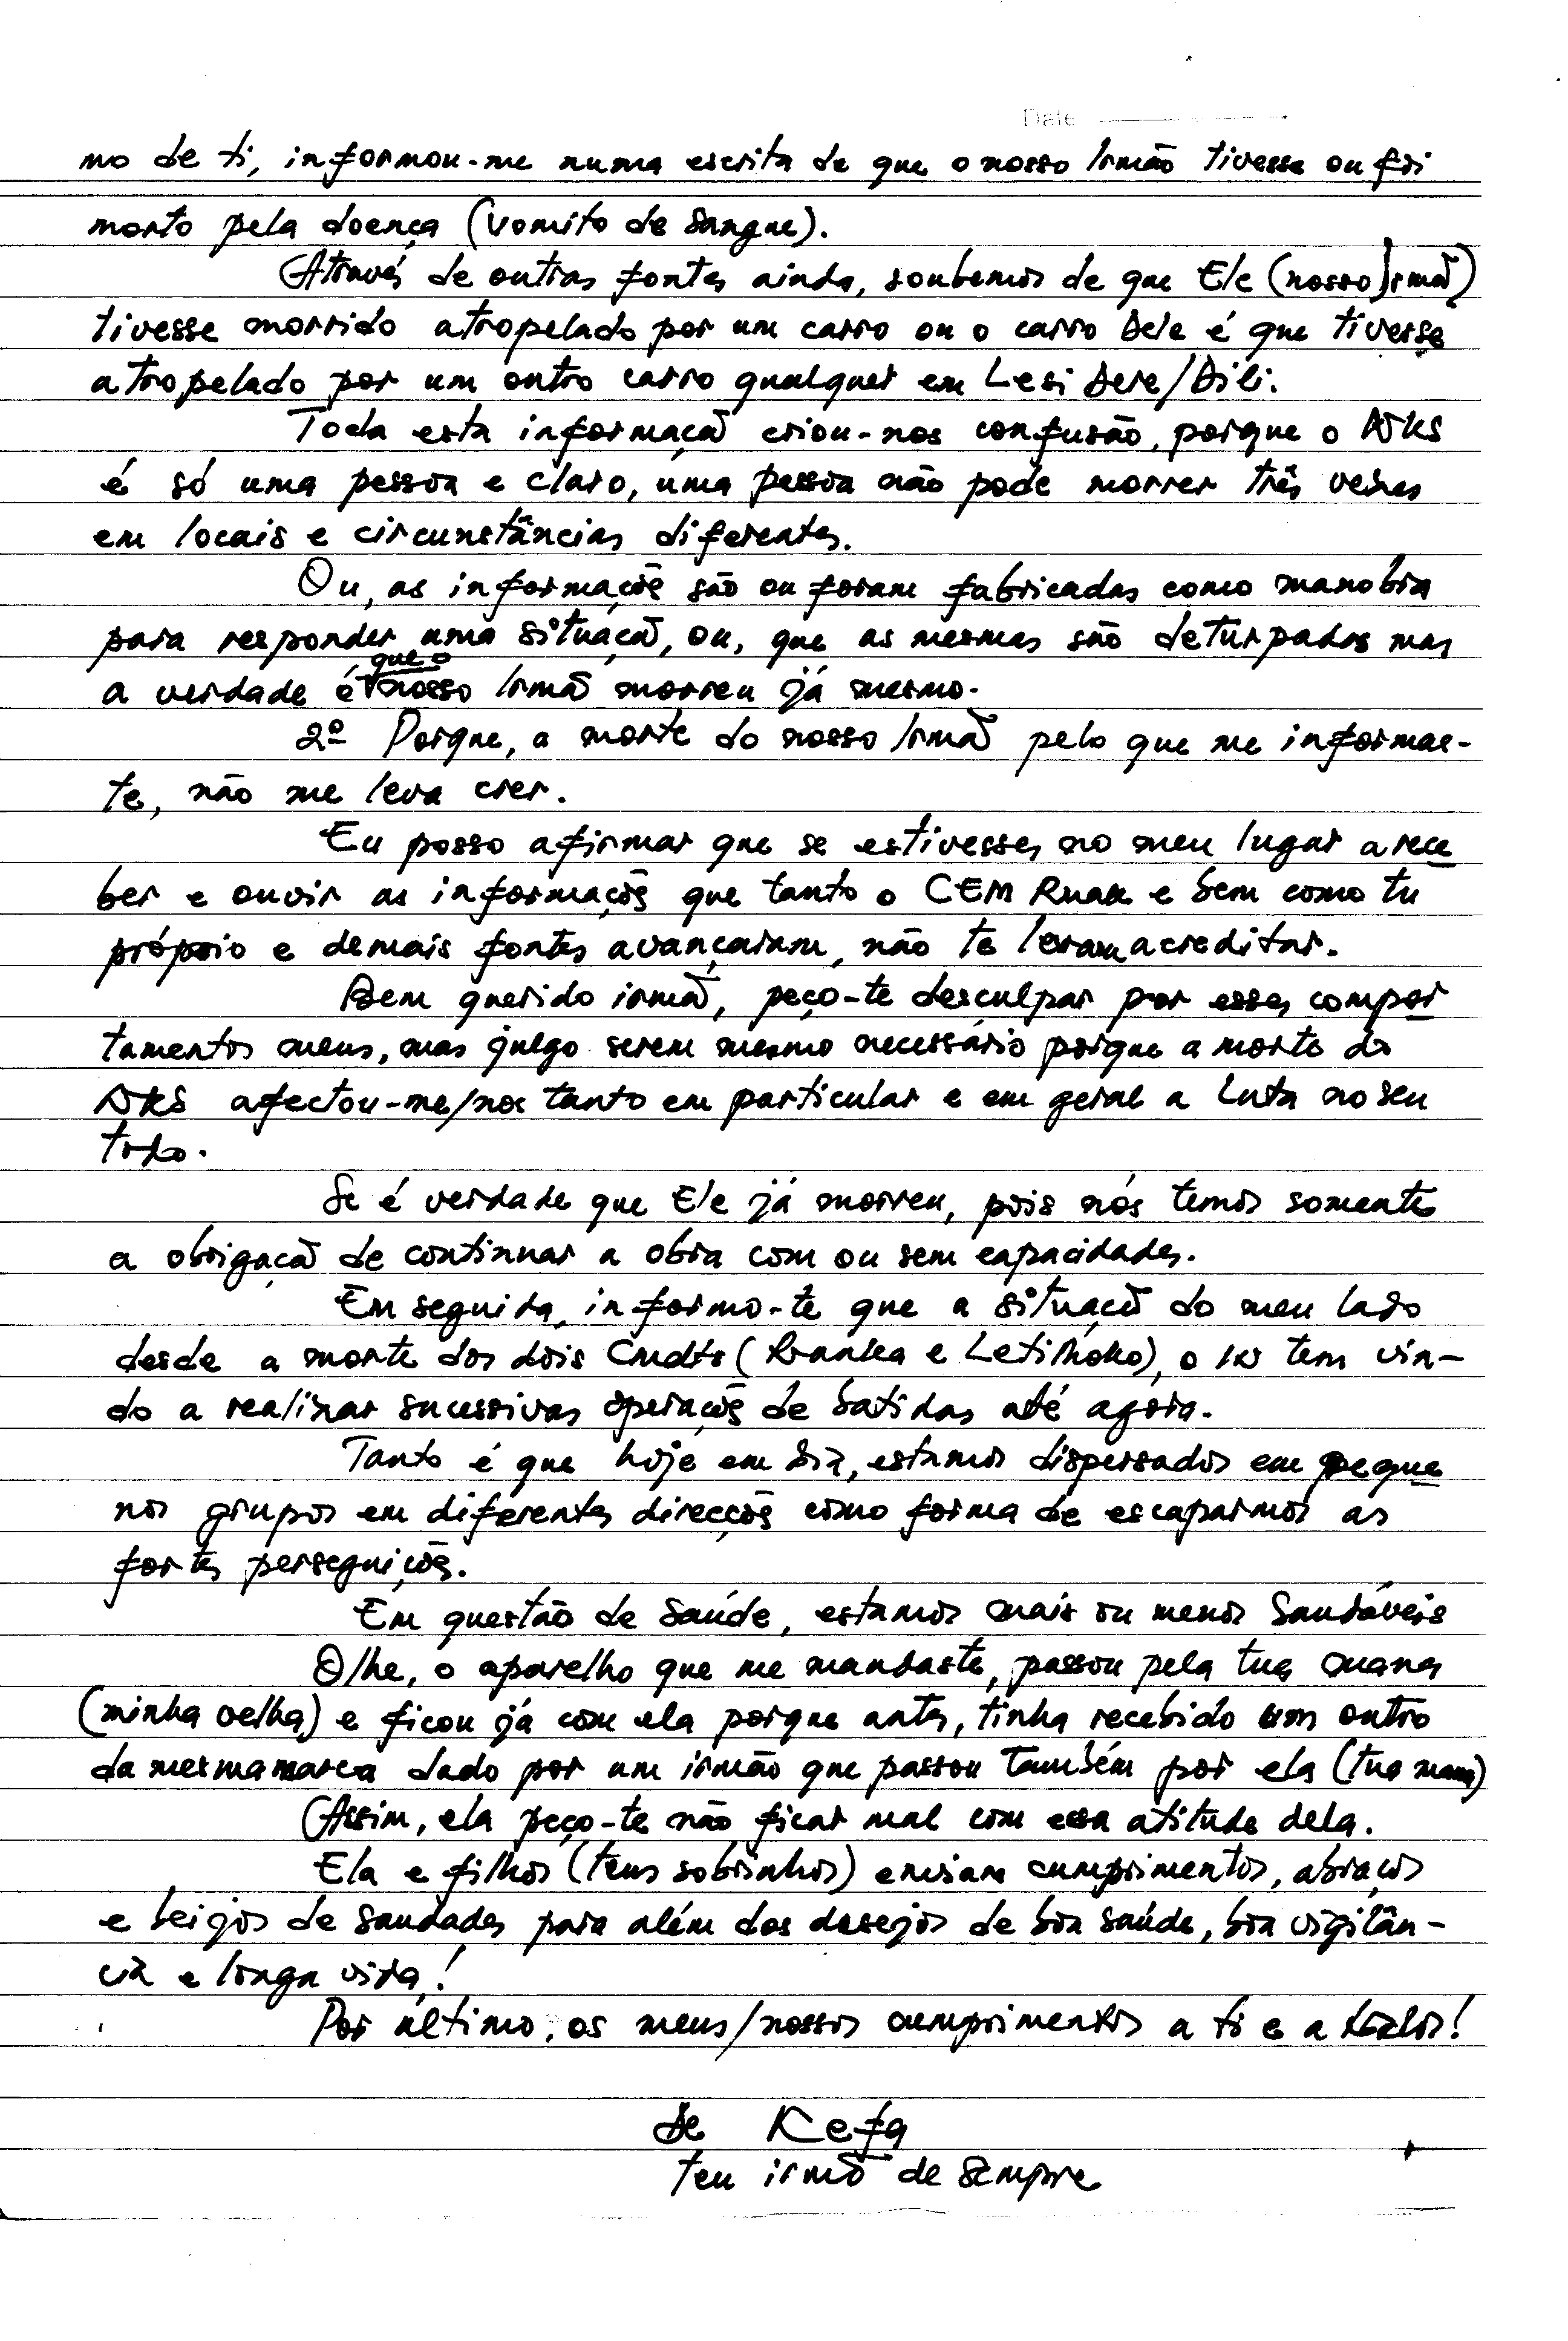 Date
mo de ti, informou-me numa escrita de que o nosso Irmão tivesse ou foi
morto pela doença (vomito de sangue).
Através de outras fontes ainda, soubemos de que Ele (nosso irmão)
tivesse morrido atropelado por um carro ou o carro dele é que tivesse
atropelado por um outro carro qualquer em Lesi dere/Dili.
Toda esta informação criou-nos confusão, porque o NKS
é só uma pessoa e claro, uma pessoa não pode morrer três vezes
em locais e circunstâncias diferentes.
Ou, as informações são ou foram fabricadas como manobra
para responder uma situação, ou, que as mesmas são deturpadas mas
a verdade é que o nosso Irmão morreu já mesmo.
2º Porque, a morte do nosso Irmão pelo que me informas-
te, não me leva crer.
Eu posso afirmar que se estivesses no meu lugar a rece
ber e ouvir as informações que tanto o CEM Ruak e bem como tu
próprio e demais fontes avançaram, não te levam acreditar.
Bem querido irmão, peço-te desculpar por esses compor
tamentos meus, mas julgo serem mesmo necessário porque a morte do
NKS afectou-me/nos tanto em particular e em geral a Luta no seu
todo.
Se é verdade que Ele já morreu, pois nós temos somente
a obrigação de continuar a obra com ou sem capacidades.
Em seguida, informo-te que a situação do meu lado
desde a morte dos dois Cmdts ( e Letihoko), o in tem vin-
do a realizar sucessivas operações de batidas até agora.
Tanto é que hoje em dia, estamos dispersados em peque
nos grupos em diferentes direcções como forma de escaparmos as
fortes perseguições.
Em questão de Saúde, estamos mais ou menos Saudáveis
Olhe, o aparelho que me mandaste, passou pela tua mana
(minha velha) e ficou já com ela porque antes, tinha recebido um outro
da mesma marca dado por um irmão que passou também por ela (tua mana)
Assim, ela peço-te não ficar mal com essa atitude dela.
Ela e filhos (teus sobrinhos) enviam cumprimentos, abraços
e beijos de saudades para além dos desejos de boa saúde, boa vigilân-
cia e longa vida!
Por último, os meus/nossos cumprimentos a ti e a todos!
De Kefa
teu irmão de sempre